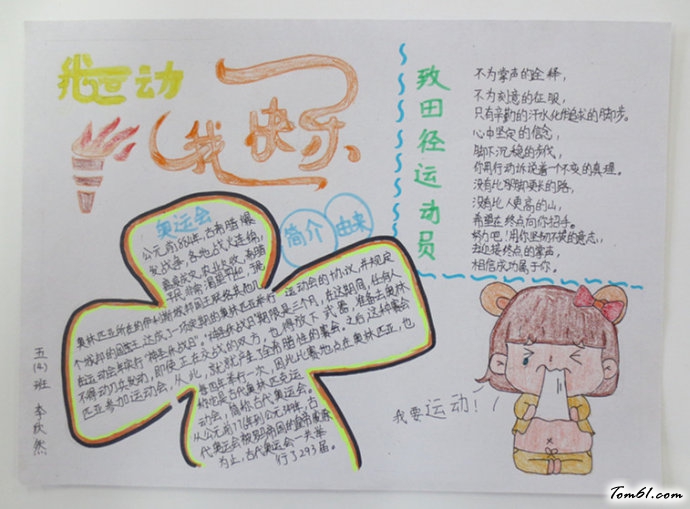 我运动
我快乐
致田径运动员
不为掌声的诠释,
不为刻意的征服,
只有辛勤的汗水化作追求的脚步。
心中坚定的信念,
脚下沉稳的步伐,
你用行动诉说着一个不变的真理。
没有比脚更长的路,
没有比人更高的山,
希望在终点向你招手。
努力吧!用你坚韧不拔的意志,
去迎接终点的掌声,
相信成功属于你。
奥运会
简介 由来
公元前884年,古希腊爆
发战争,各地战火连绵,
平民非常渴望和平。
奥林匹亚所在的伊利斯城邦国王联络其他几
个城邦的国王,达成了一项定期在奥林匹亚举行 运动会的协议,并规定
不得动刀兵
即使正在交战的双方,也得放下武器,准备去奥林
匹亚参加运动会,从此,就
产生了全希腊性的赛会。之后这种赛会
每四年举行一次,因此比赛地点在奥林匹亚,也
称它是古代奥林匹克运
动会,简称古代奥运会。
为止,古代奥运会一共举
行了293届。
五(4)班 李欣然
我要运动!
Tom61.com